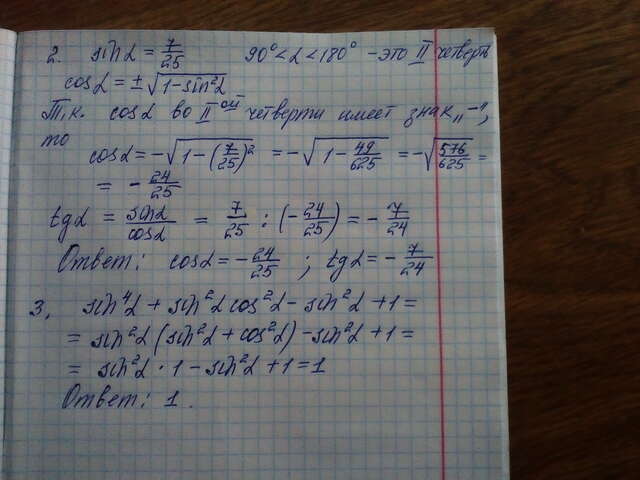 2. sin α = 7/25   90° < α < 180° - это II четверть
cos α = ± √(1 - sin²α)
Т.к. cos α во II ой четверти имеет знак „-",
то
cos α = - √(1 - (7/25)²) = - √(1 - 49/625) = - √(576/625) =
= - 24/25
tg α = sin α / cos α = 7/25 : (- 24/25) = - 7/24
Ответ: cos α = - 24/25 ; tg α = - 7/24
3. sin⁴α + sin²α cos²α - sin²α + 1 =
= sin²α (sin²α + cos²α) - sin²α + 1 =
= sin²α · 1 - sin²α + 1 = 1
Ответ: 1.